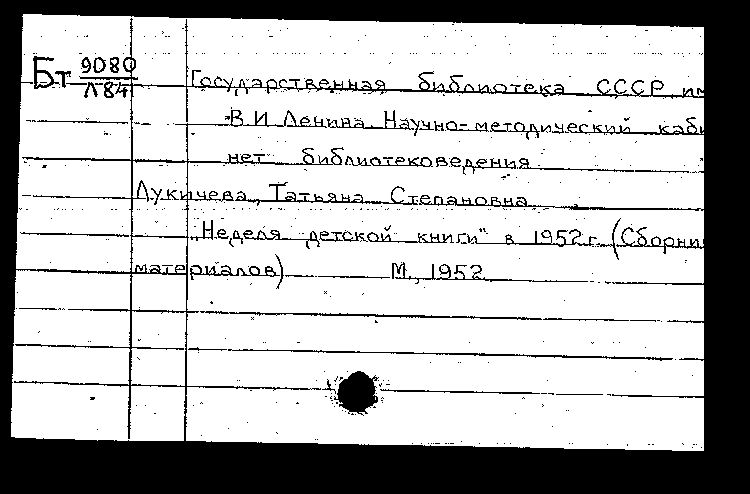 Бт 9080
Л84
Государственная библиотека СССР им
В.И Ленина. Научно-методический каби
нет библиотековедения
Лукичева, Татьяна Степановна
„Неделя детской книги“ в 1952 г. (Сборни
материалов) М., 1952